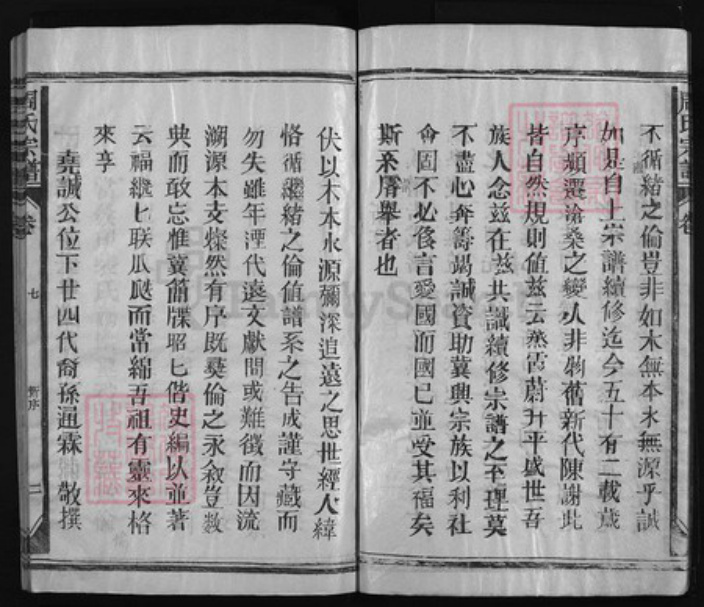 不循緒之倫豈非如木無本水無源乎誠
如是自上宗譜續修迄今五十有二載歲
序頻遷滄桑之變人非物舊新代陳謝此
皆自然規則值茲云蒸霞蔚升平盛世吾
族人念茲在茲共識續修宗譜之至理莫
不盡心奔籌竭誠資助冀興宗族以利社
會固不必食言愛國而國己並受其福矣
斯釆厝舉者也
伏以木本水源彌深追遠之思世經人緯
恪循繼緒之倫值譜系之告成謹守藏而
勿失雖年湮代遠文獻間或難徵而因流
溯源本支燦然有序既彝倫之永敘豈數
典而敢忘惟冀簡牒昭匕偕史編以並著
云福繼匕联瓜瓞而常綿吾祖有靈來格
來享
堯誠公位下廿四代裔孫通霖 敬撰
周氏宗譜 卷
七
新序
二
周氏宗譜 卷